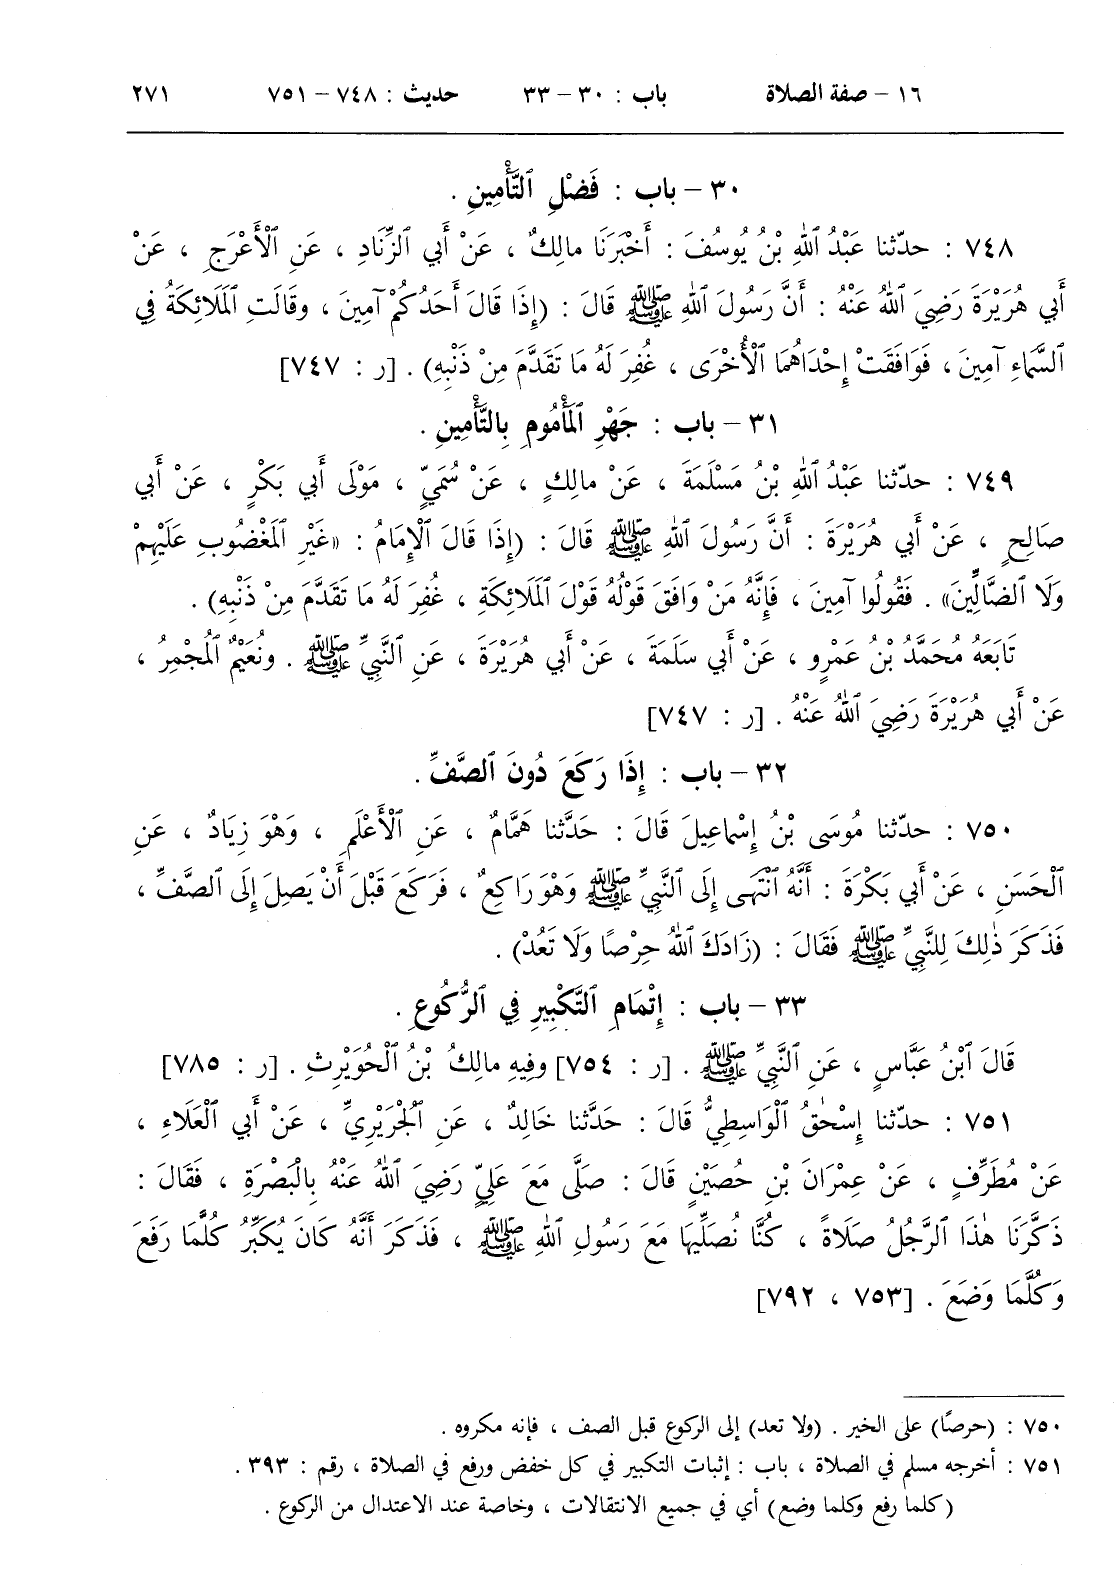 ١٦ – صفة الصلاة باب : ٣٠ – ٣٣ حديث : ٧٤٨ – ٧٥١ ٢٧١
٣٠ – باب : فَضْلِ ٱلتَّأْمِينِ .
٧٤٨ : حدّثنا عَبْدُ ٱللهِ بْنُ يُوسُفَ : أَخْبَرَنَا مالِكٌ ، عَنْ أَبي ٱلزِّنَادِ ، عَنِ ٱلْأَعْرَجِ ، عَنْ
أَبي هُرَيْرَةَ رَضِيَ ٱللهُ عَنْهُ : أَنَّ رَسُولَ ٱللهِ ﷺ قَالَ : (إِذَا قَالَ أَحَدُكُمْ آمِينَ ، وقَالَتِ ٱلْمَلَائِكَةُ فِي
ٱلسَّمَاءِ آمِينَ ، فَوَافَقَتْ إِحْدَاهُمَا ٱلْأُخْرَى ، غُفِرَ لَهُ مَا تَقَدَّمَ مِنْ ذَنْبِهِ) . [ر : ٧٤٧]
٣١ – باب : جَهْرِ ٱلْمَأْمُومِ بِالتَّأْمِينِ .
٧٤٩ : حدّثنا عَبْدُ ٱللهِ بْنُ مَسْلَمَةَ ، عَنْ مالِكٍ ، عَنْ سُمَيٍّ ، مَوْلَى أَبي بَكْرٍ ، عَنْ أَبي
صَالِحٍ ، عَنْ أَبي هُرَيْرَةَ : أَنَّ رَسُولَ ٱللهِ ﷺ قَالَ : (إِذَا قَالَ ٱلْإِمَامُ : «غَيْرِ ٱلْمَغْضُوبِ عَلَيْهِمْ
وَلَا ٱلضَّالِّينَ» . فَقُولُوا آمِينَ ، فَإِنَّهُ مَنْ وَافَقَ قَوْلُهُ قَوْلَ ٱلْمَلَائِكَةِ ، غُفِرَ لَهُ مَا تَقَدَّمَ مِنْ ذَنْبِهِ) .
تَابَعَهُ مُحَمَّدُ بْنُ عَمْرٍو ، عَنْ أَبي سَلَمَةَ ، عَنْ أَبي هُرَيْرَةَ ، عَنِ ٱلنَّبِيِّ ﷺ . ونُعَيْمٌ ٱلْمُجْمِرُ ،
عَنْ أَبي هُرَيْرَةَ رَضِيَ ٱللهُ عَنْهُ . [ر : ٧٤٧]
٣٢ – باب : إِذَا رَكَعَ دُونَ ٱلصَّفِّ .
٧٥٠ : حدّثنا مُوسَى بْنُ إِسْماعِيلَ قَالَ : حَدَّثنا هَمَّامٌ ، عَنِ ٱلْأَعْلَمِ ، وَهْوَ زِيَادٌ ، عَنِ
ٱلْحَسَنِ ، عَنْ أَبي بَكْرَةَ : أَنَّهُ ٱنْتَهَى إِلَى ٱلنَّبِيِّ ﷺ وَهْوَ رَاكِعٌ ، فَرَكَعَ قَبْلَ أَنْ يَصِلَ إِلَى ٱلصَّفِّ ،
فَذَكَرَ ذٰلِكَ لِلنَّبِيِّ ﷺ فَقَالَ : (زَادَكَ ٱللهُ حِرْصًا وَلَا تَعُدْ) .
٣٣ – باب : إِتْمَامِ ٱلتَّكْبِيرِ فِي ٱلرُّكُوعِ .
قَالَ ٱبْنُ عَبَّاسٍ ، عَنِ ٱلنَّبِيِّ ﷺ . [ر : ٧٥٤] وفِيهِ مالِكُ بْنُ ٱلْحُوَيْرِثِ . [ر : ٧٨٥]
٧٥١ : حدّثنا إِسْحٰقُ ٱلْوَاسِطِيُّ قَالَ : حَدَّثنا خَالِدٌ ، عَنِ ٱلْجُرَيْرِيِّ ، عَنْ أَبي ٱلْعَلَاءِ ،
عَنْ مُطَرِّفٍ ، عَنْ عِمْرَانَ بْنِ حُصَيْنٍ قَالَ : صَلَّى مَعَ عَلِيٍّ رَضِيَ ٱللهُ عَنْهُ بِالْبَصْرَةِ ، فَقَالَ :
ذَكَّرَنَا هٰذَا ٱلرَّجُلُ صَلَاةً ، كُنَّا نُصَلِّيهَا مَعَ رَسُولِ ٱللهِ ﷺ ، فَذَكَرَ أَنَّهُ كَانَ يُكَبِّرُ كُلَّمَا رَفَعَ
وَكُلَّمَا وَضَعَ . [٧٥٣ ، ٧٩٢]
٧٥٠ : (حرصًا) على الخير . (ولا تعد) إلى الركوع قبل الصف ، فإنه مكروه .
٧٥١ : أخرجه مسلم في الصلاة ، باب : إثبات التكبير في كل خفض ورفع في الصلاة ، رقم : ٣٩٣ .
(كلما رفع وكلما وضع) أي في جميع الانتقالات ، وخاصة عند الاعتدال من الركوع .